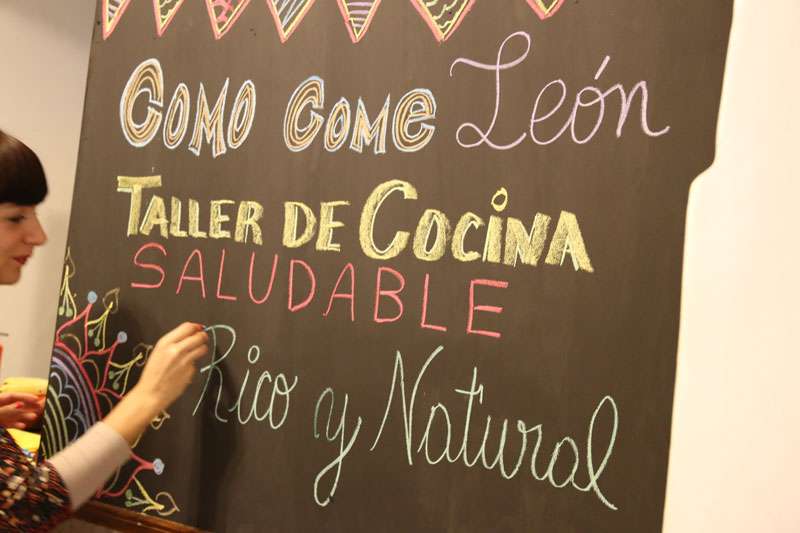 COMO COME León
TALLER DE COCINA
SALUDABLE
Rico y Natural